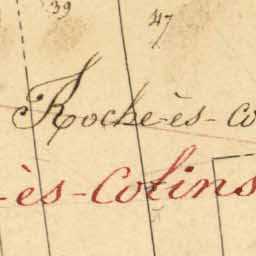 39
47
Roche-ès-co
-ès-Colins